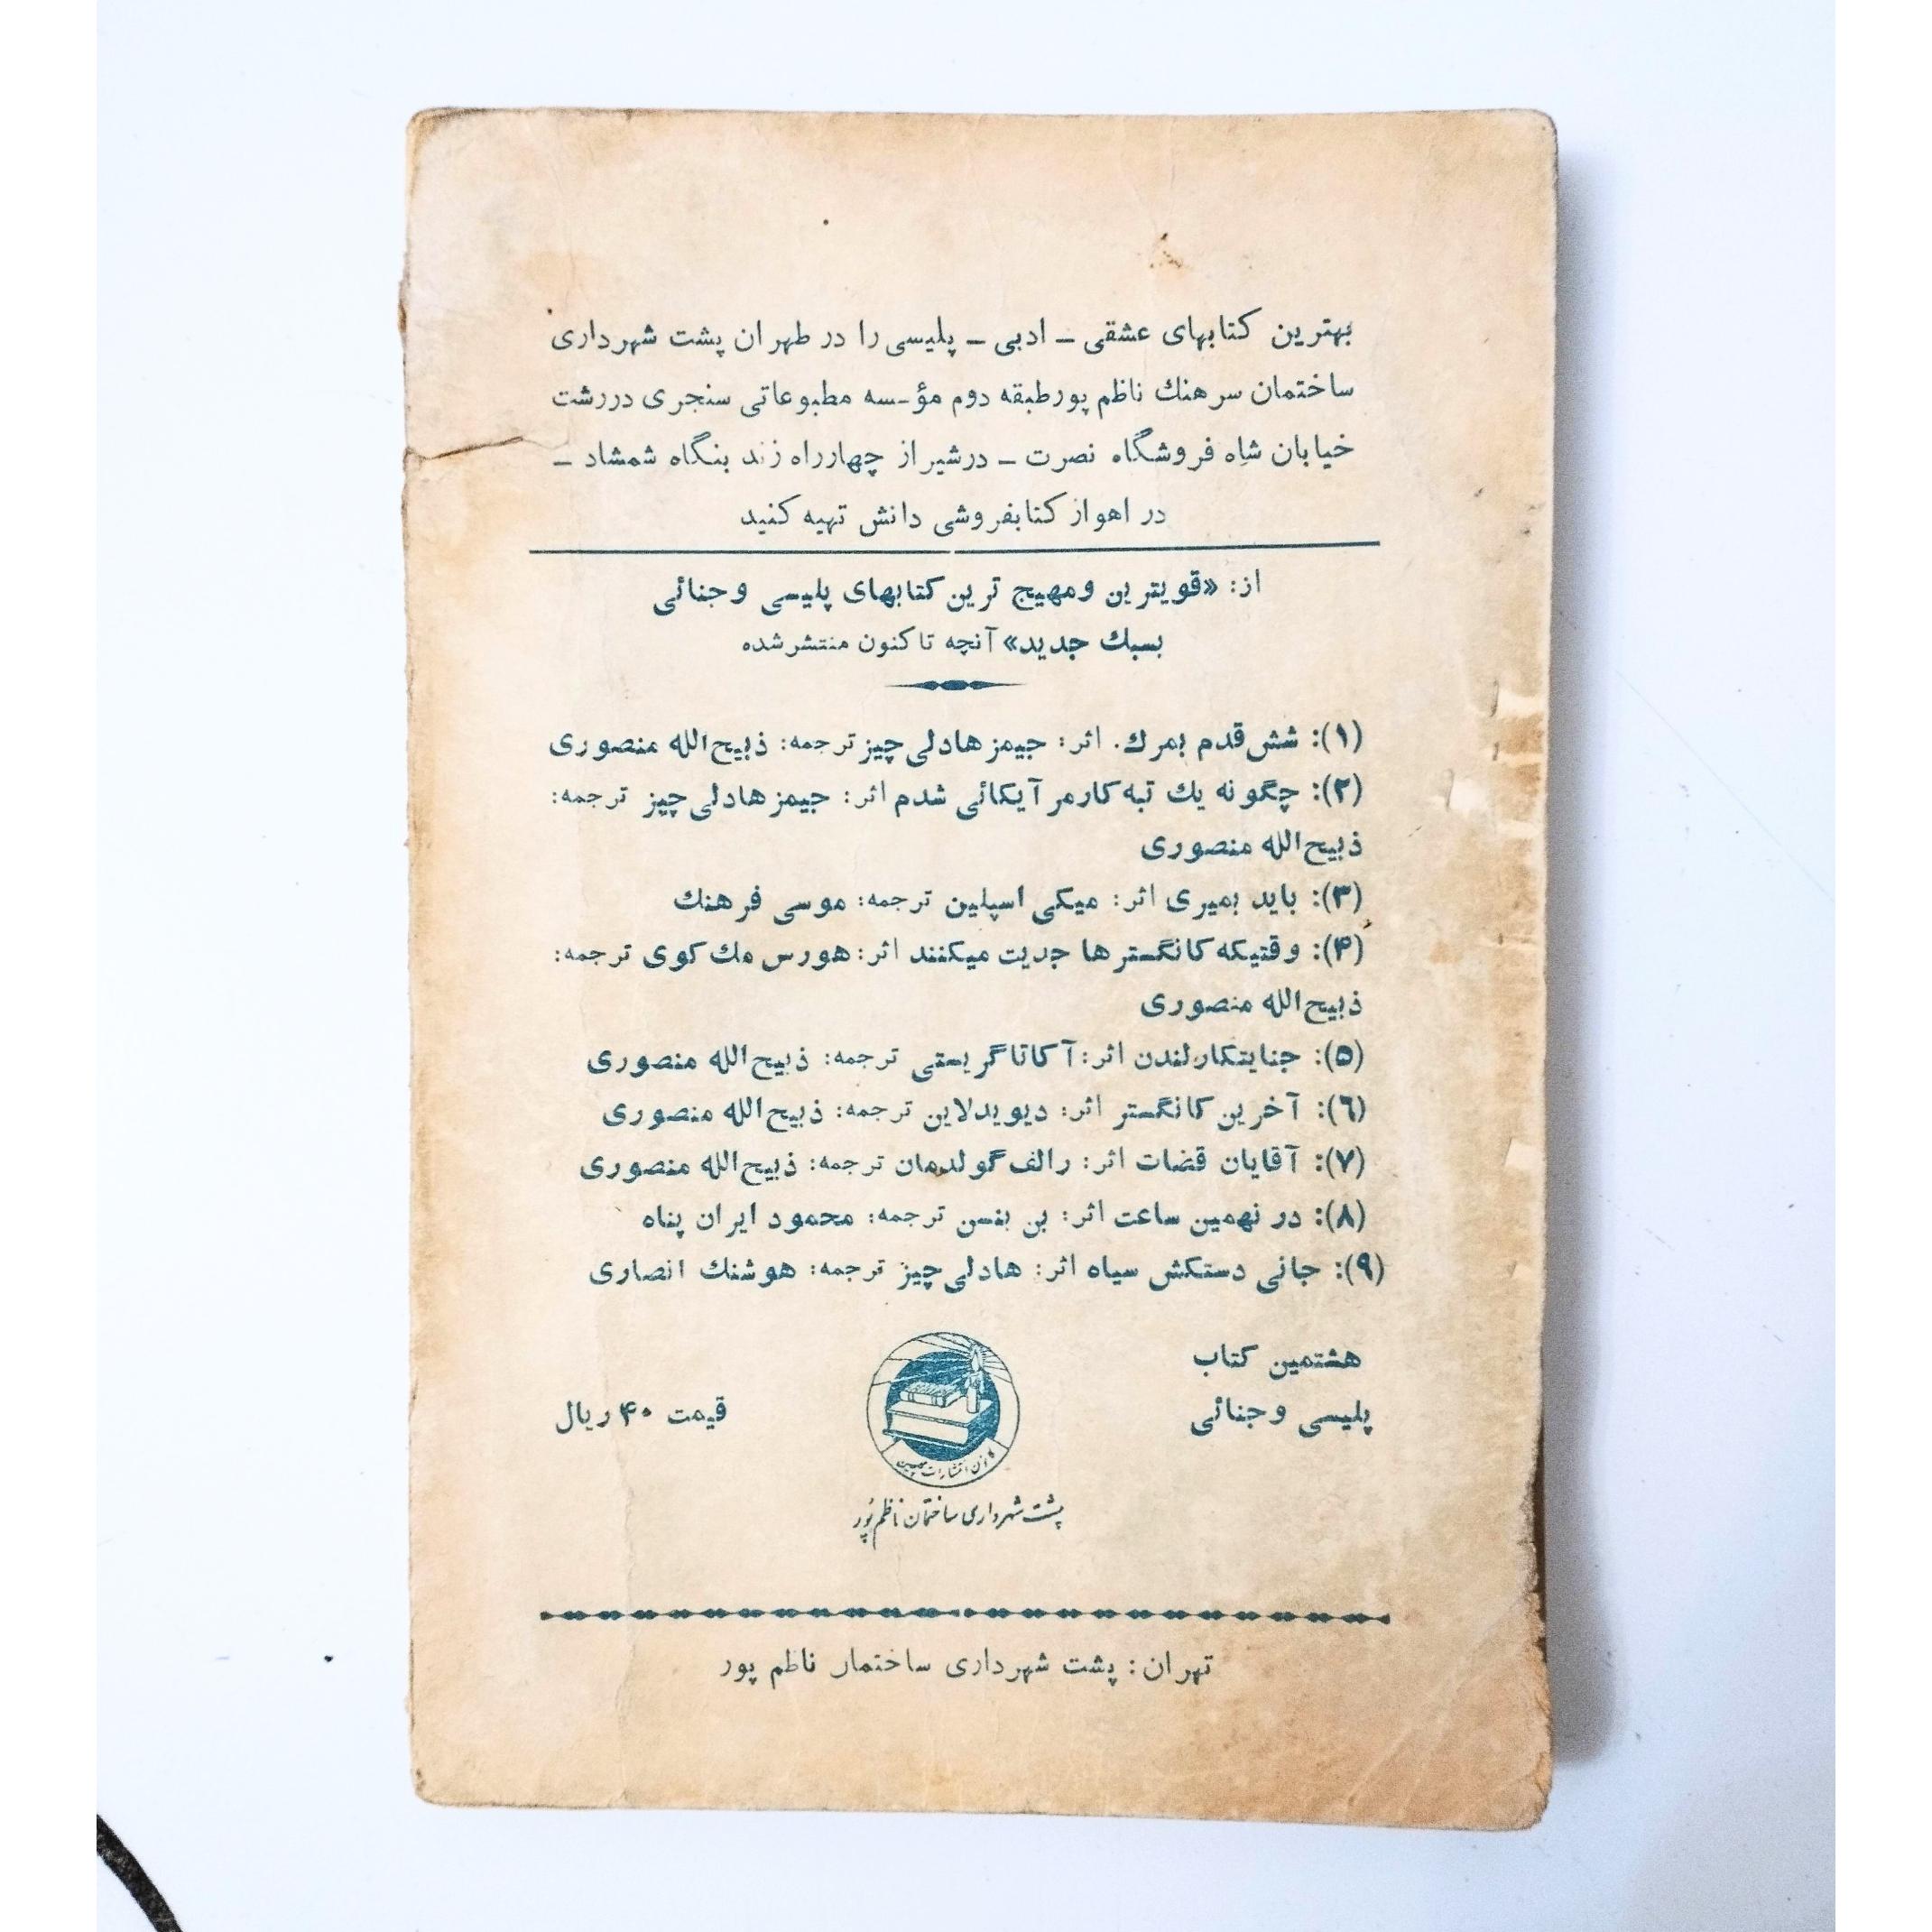 بهترین کتابهای عشقی ـ ادبی ـ پلیسی را در طهران پشت شهرداری
ساختمان سرهنك ناظم پور طبقه دوم مؤسسه مطبوعاتی سنجری در رشت
خیابان شاه فروشگاه نصرت ـ در شیراز چهارراه زند بنگاه شمشاد ـ
در اهواز کتابفروشی دانش تهیه کنید
از: «قویترین و مهیج ترین کتابهای پلیسی و جنائی
بسبك جدید» آنچه تاکنون منتشر شده
(۱): شش قدم بمرك. اثر: جیمز هادلی چیز ترجمه: ذبیح‌الله منصوری
(۲): چگونه یك تبه کار مر آیکائی شدم اثر: جیمز هادلی چیز ترجمه:
ذبیح‌الله منصوری
(۳): باید بمیری اثر: میکی اسپلین ترجمه: موسی فرهنك
(۴): وقتیکه کانگسترها جدیت میکنند اثر: هورس مك کوی ترجمه:
ذبیح‌الله منصوری
(۵): جنایتکار لندن اثر: آکاتا گریستی ترجمه: ذبیح‌الله منصوری
(۶): آخرین کانگستر اثر: دیوید لاین ترجمه: ذبیح‌الله منصوری
(۷): آقایان قضات اثر: رالف گولدمان ترجمه: ذبیح‌الله منصوری
(۸): در نهمین ساعت اثر: بن بنسن ترجمه: محمود ایران پناه
(۹): جانی دستکش سیاه اثر: هادلی چیز ترجمه: هوشنك انصاری
هشتمین کتاب
پلیسی و جنائی
قیمت ۴۰ ریال
انتشارات
پشت شهرداری ساختمان ناظم پور
تهران: پشت شهرداری ساختمان ناظم پور